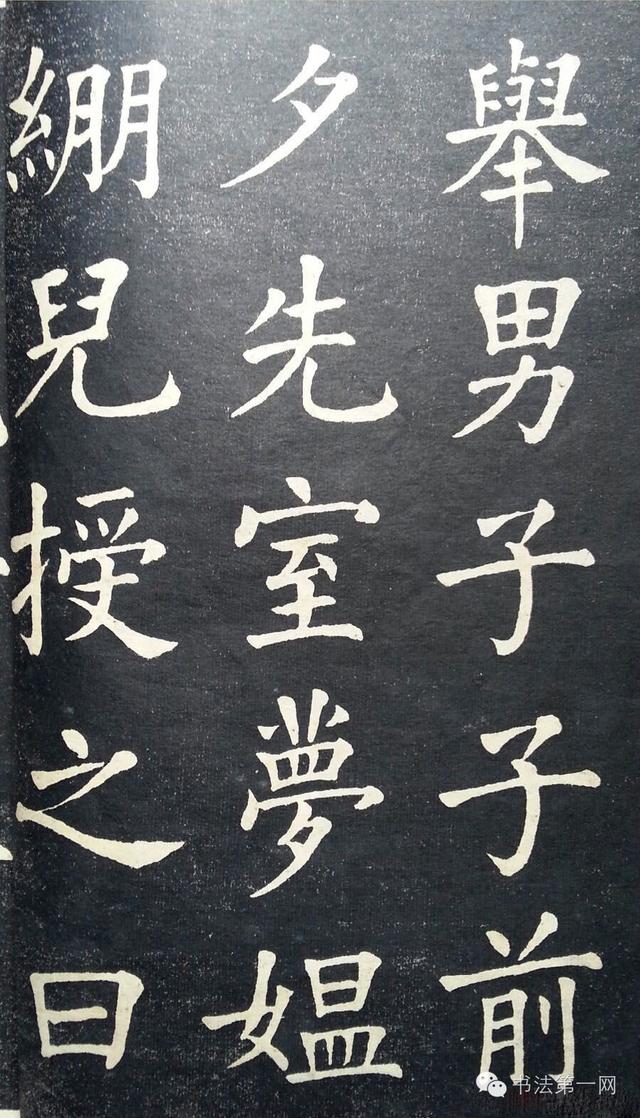 舉男子子前
夕先室夢媪
繃兒授之曰
书法第一网